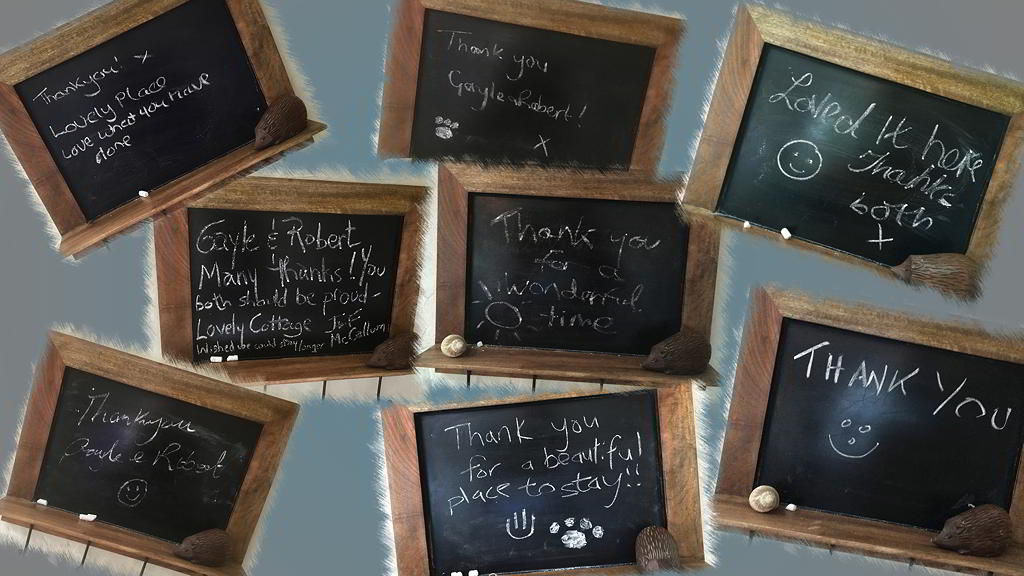 Thankyou! x
Lovely Place
Love what you have
done
Thank you
Gayle & Robert!
x
Loved It here
Thanks
both
x
Gayle & Robert
Many thanks! You
both should be proud -
Lovely Cottage J & E
Wished we could stay longer McCallum
Thank you
for a
wonderful
time
Thankyou
Gayle & Robert
Thank you
for a beautiful
place to stay!!
THANK YOU